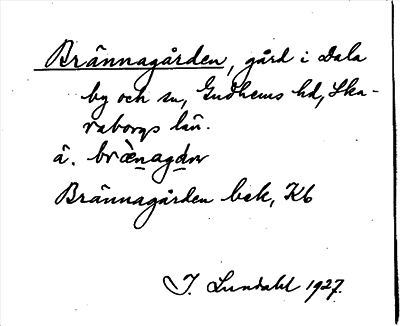 Brännagården, gård i Dala
by och sn, Gudhems hd, Ska-
raborgs län.
å. brä̀nagdn
Brännagården bek, Kb
I. Lundahl 1927.